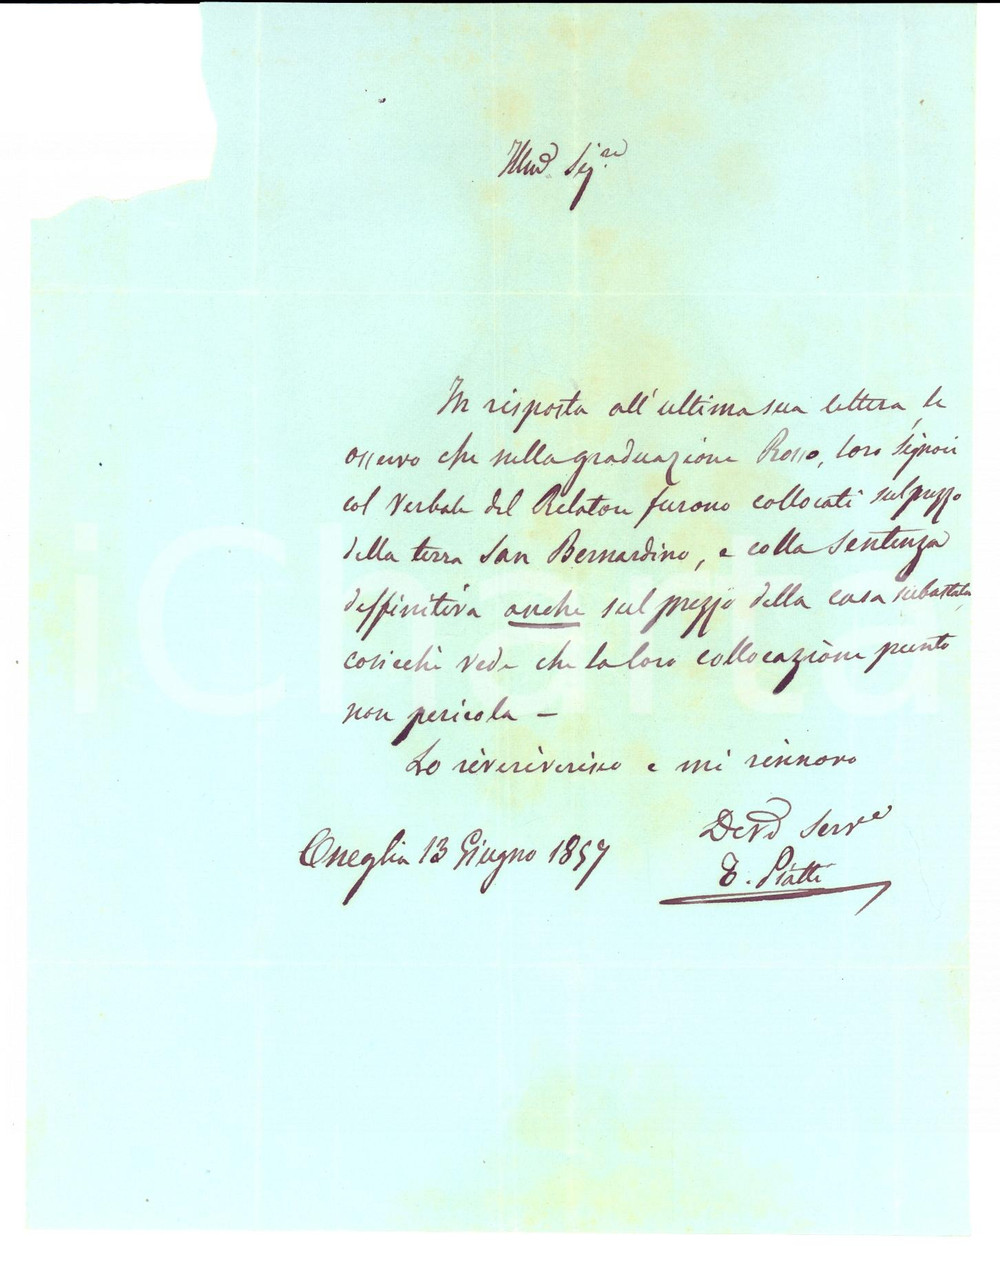 Illmo. Sigre
In risposta all'ultima sua lettera, le
osservo che nella graduazione Rosso, loro Signori
col Verbale del Relatore furono collocati sul prezzo
della terra San Bernardino, e colla sentenza
deffinitiva anche sul prezzo della casa subastata,
cosicchè vede che la loro collocazione punto
non pericola –
Lo riverisco e mi rinnovo
Devo Serve
Oneglia 13 Giugno 1857
Piatti
iCharta